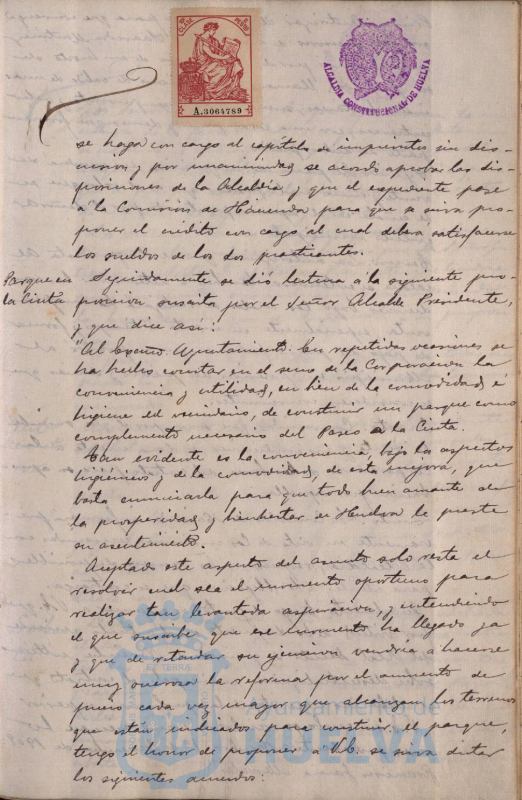 CLASE
A.3064789
ALCALDIA CONSTITUCIONAL DE HUELVA
se haga con cargo al capítulo de imprevistos sin dis-
cusion y por unanimidad se acordó aprobar las dis-
posiciones de la Alcaldía y que el expediente pase
á la Comision de Hacienda para que se sirva pro-
poner el crédito con cargo al cual debera satisfacerse
los sueldos de los dos practicantes.
Parque en
la Cinta
Seguidamente se dió lectura á la siguiente pro-
posicion suscrita por el Señor Alcalde Presidente,
y que dice así:
"Al Excmo. Ayuntamiento. En repetidas ocasiones se
ha hecho constar en el seno de la Corporacion la
conveniencia y utilidad, en bien de la comodidad é
higiene del vecindario, de construir un parque como
complemento necesario del Paseo á la Cinta.
Tan evidente es la conveniencia, bajo los aspectos
higiénicos y de la comodidad, de esta mejora, que
basta enunciarla para que todo buen amante de
la prosperidad y bienhestar de Huelva le preste
su asentimiento.
Aceptado este aspecto del asunto solo resta el
resolver cual sea el momento oportuno para
realizar tan levantada aspiracion, y entendiendo
el que suscribe que ese momento ha llegado ya
y que de retardar su ejecucion vendría a hacerse
muy onerosa la reforma por el aumento de
precio cada vez mayor que alcanzan los terrenos
que están indicados para construir el parque,
tengo el honor de proponer á V.E. se sirva dictar
los siguientes acuerdos:
Ayuntamiento de
HUELVA